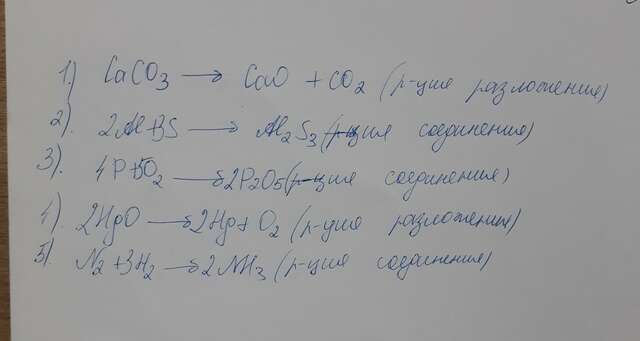 1) CaCO3 → CaO + CO2 (р-ция разложения)
2). 2Al+3S → Al2S3 (р-ция соединения)
3). 4P+5O2 → 2P2O5 (р-ция соединения)
4). 2HgO → 2Hg + O2 (р-ция разложения)
5). N2 + 3H2 → 2NH3 (р-ция соединения)